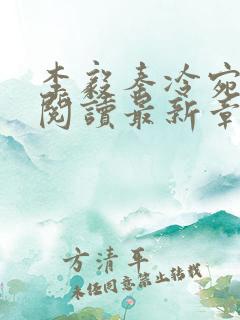 李毅秦冷宛
閱讀最新章
方清平
未经同意禁止转载